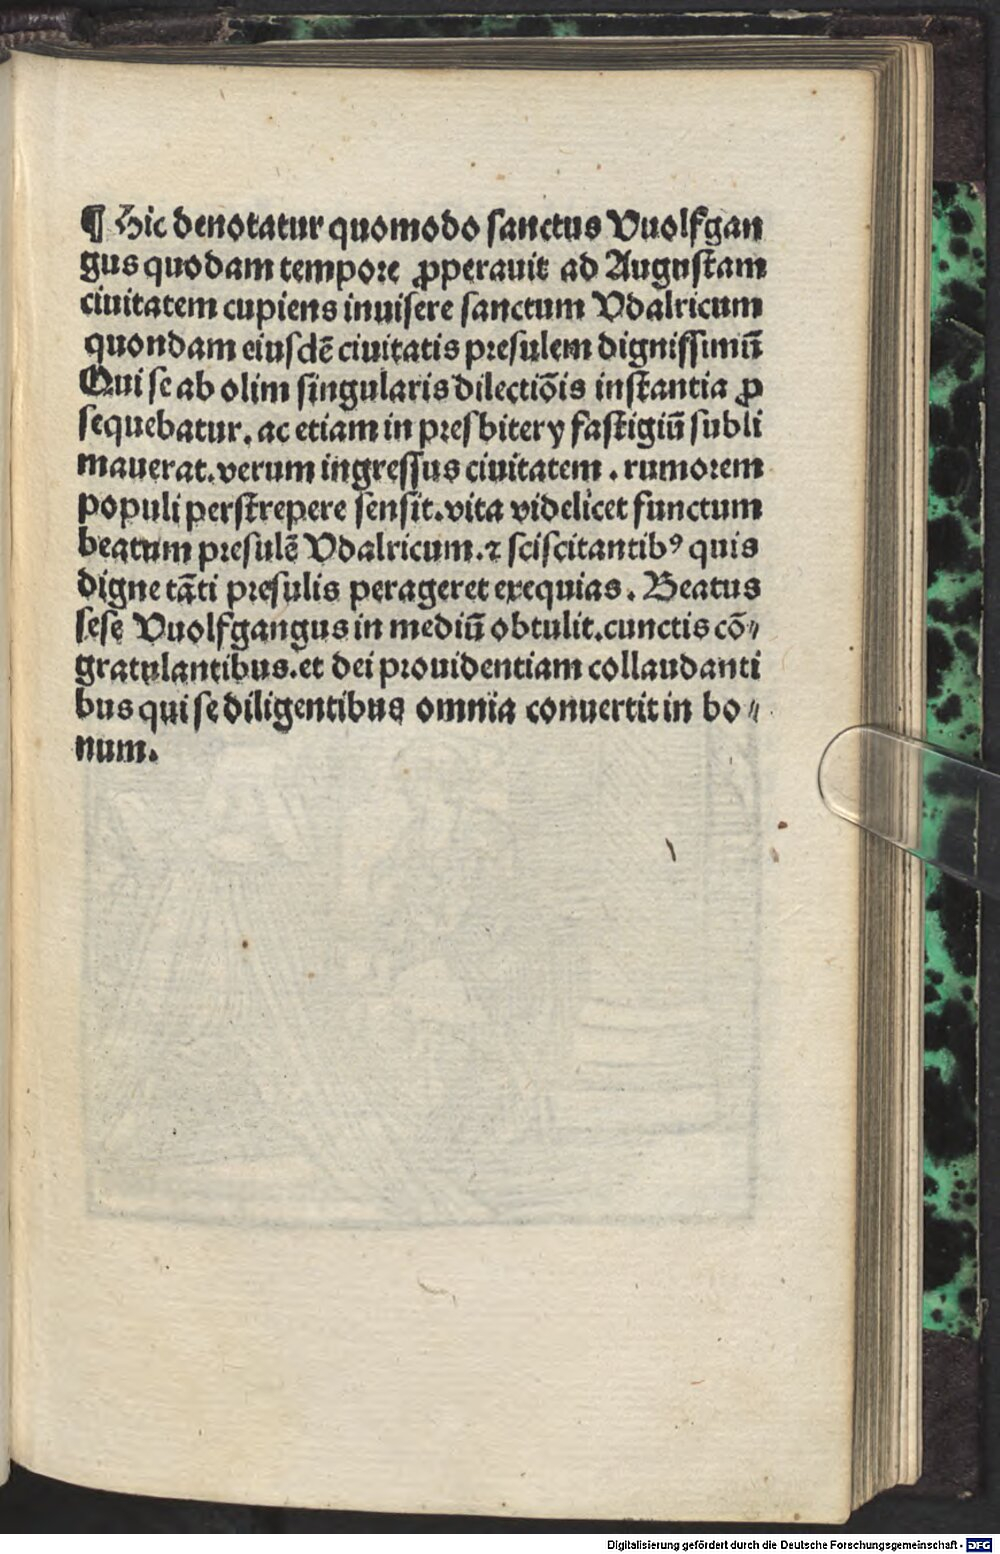 ¶ Hic denotatur quomodo ſanctus Vuolfgan
gus quodam tempore ꝓperauit ad Auguſtam
ciuitatem cupiens inuiſere ſanctum Vdalricum
quondam eiuſdē ciuitatis preſulem digniſſimū
Qui ſe ab olim ſingularis dilectiōis inſtantia ꝓ
ſequebatur. ac etiam in preſbitery faſtigiū ſubli
mauerat. verum ingreſſus ciuitatem . rumorem
populi perſtrepere ſenſit. vita videlicet functum
beatum preſulē Vdalricum. ⁊ ſciſcitantibꝰ quis
digne tāti preſulis perageret exequias. Beatus
ſeſe Vuolfgangus in mediū obtulit. cunctis cō⸗
gratulantibus. et dei prouidentiam collaudanti
bus qui ſe diligentibus omnia conuertit in bo⸗
num.
Digitalisierung gefördert durch die Deutsche Forschungsgemeinschaft - DFG